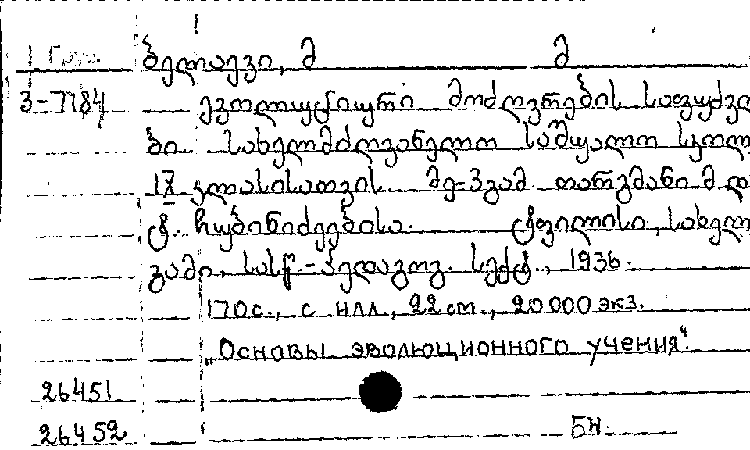 ბელიაევი, მ მ
3-7184 ევოლუციური მოძღვრების საფუძვლე
ბი სახელმძღვანელო საშუალო სკოლ
IX კლასისათვის. მე-3 გამ. თარგმანი მ. და
ტ. ჩუბინიძეებისა. ტფილისი, სახელ
გამი, სას წ.-პედაგოგ. სექტ., 1936.
170 с., с илл., 22 см., 20 000 экз.
„Основы эволюционного учения“.
26451
26452 БН.